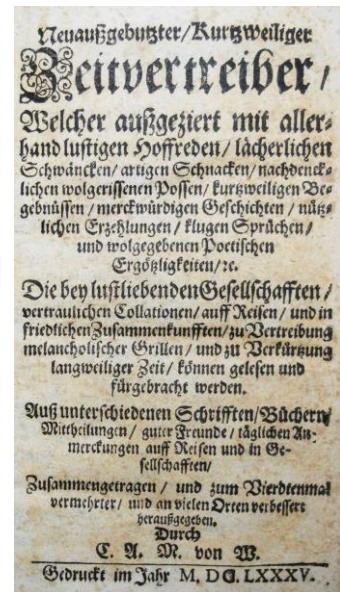 Neuaußgebutzter/Kurtzweiliger
Zeitvertreiber/
Welcher außgeziert mit aller-
hand lustigen Hoffreden/ lächerlichen
Schwäncken/ artigen Schnacken/ nachdenck-
lichen wolgerissenen Possen/ kurtzweiligen Be-
gebnüssen/ merckwürdigen Geschichten/ nütz-
lichen Erzehlungen/ klugen Sprüchen/
und wolgegebenen Poetischen
Ergötzligkeiten/ꝛc.
Die bey lustliebenden Gesellschafften/
vertraulichen Collationen/ auff Reisen/ und in
friedlichen Zusammenkunfften/ zu Vertreibung
melancholischer Grillen/ und zu Verkürtzung
langweiliger Zeit/ können gelesen und
fürgebracht werden.
Auß unterschiedenen Schrifften/Büchern/
Mittheilungen/ guter Freunde/ täglichen An-
merckungen auff Reisen und in Ge-
sellschafften/
Zusammengetragen/ und zum Vierdtenmal
vermehrter/ und an vielen Orten verbessert
herausgegeben.
Durch
C. A. M. von W.
Gedruckt im Jahr M. DC. LXXXV.